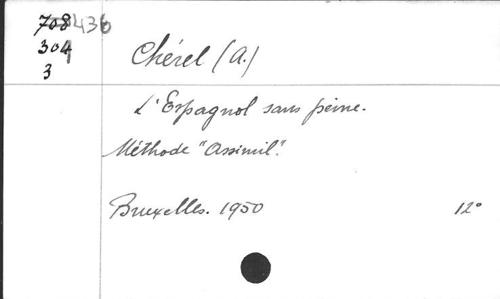 708 436
304
3
Chérel (A.)
L'Espagnol sans peine.
Méthode "Assimil".
Bruxelles. 1950 12°